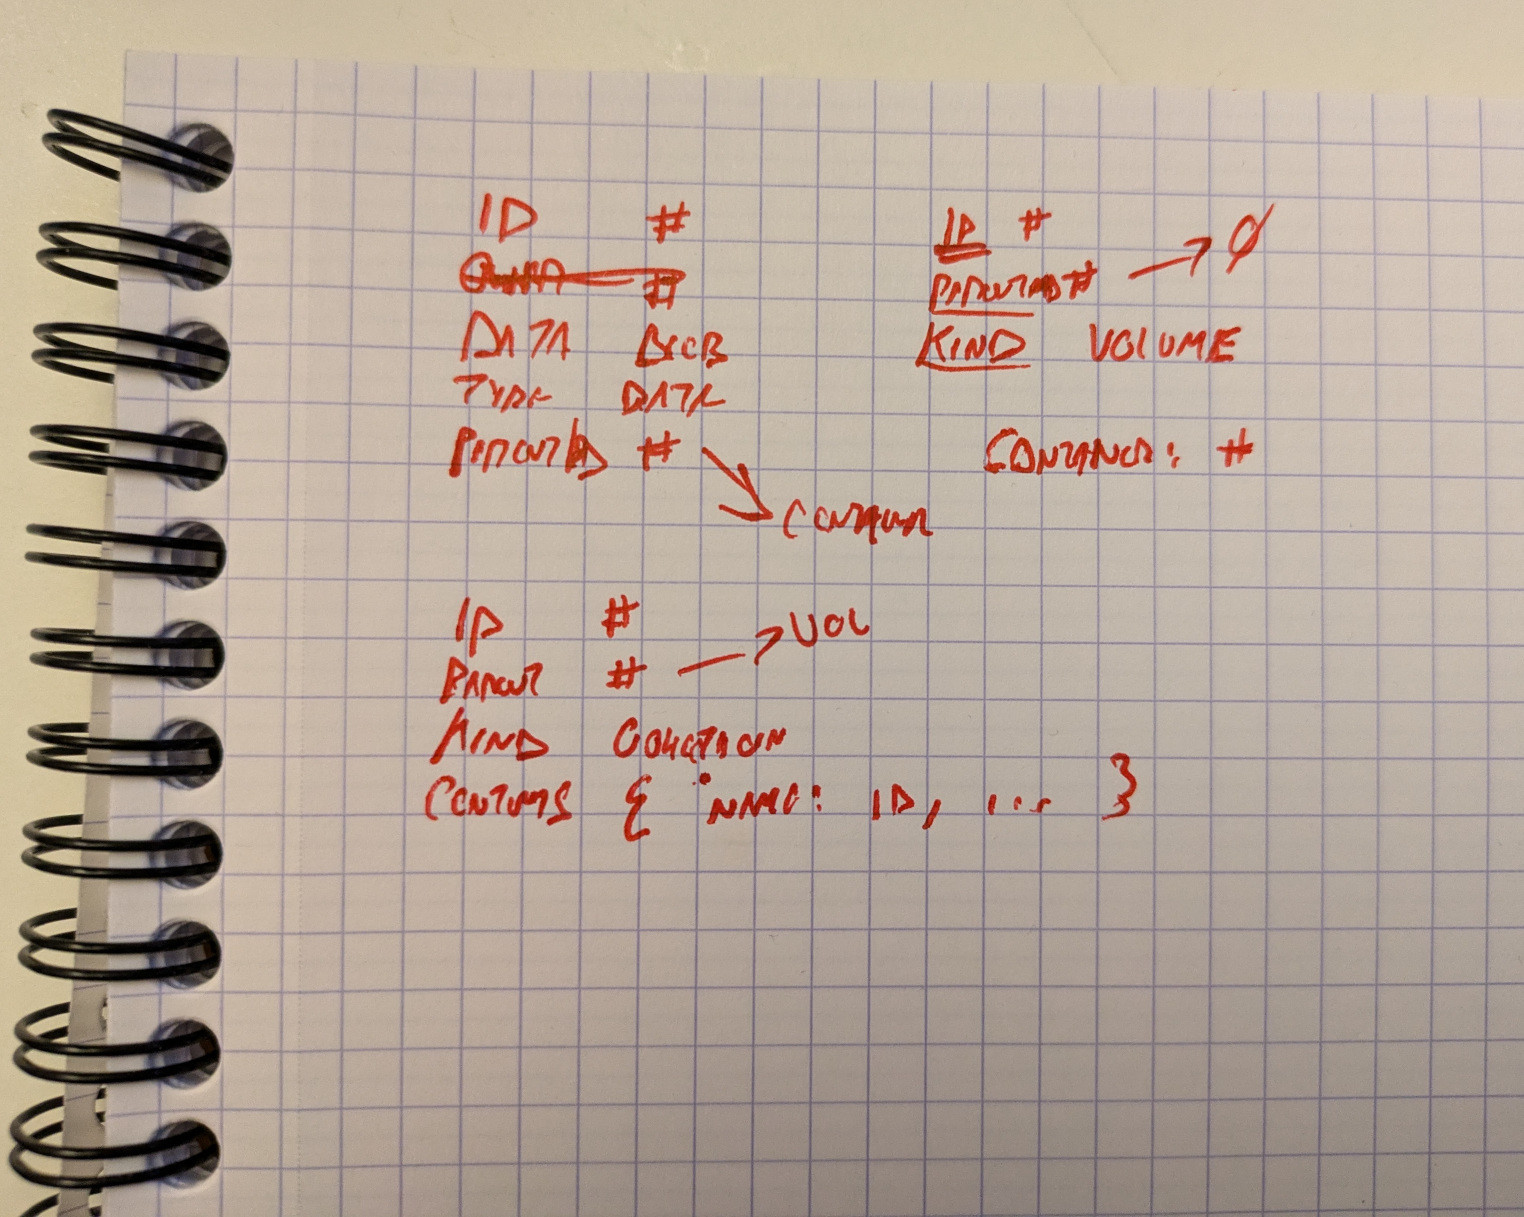 ID #
#
DATA BLOB
TYPE DATA
PARENTID #
CONTAINER
ID #
PARENTID # → Ø
KIND VOLUME
CONTAINER: #
ID #
PARENT # → VOL
KIND COLLECTION
CONTENTS { "NAME: ID, ... }